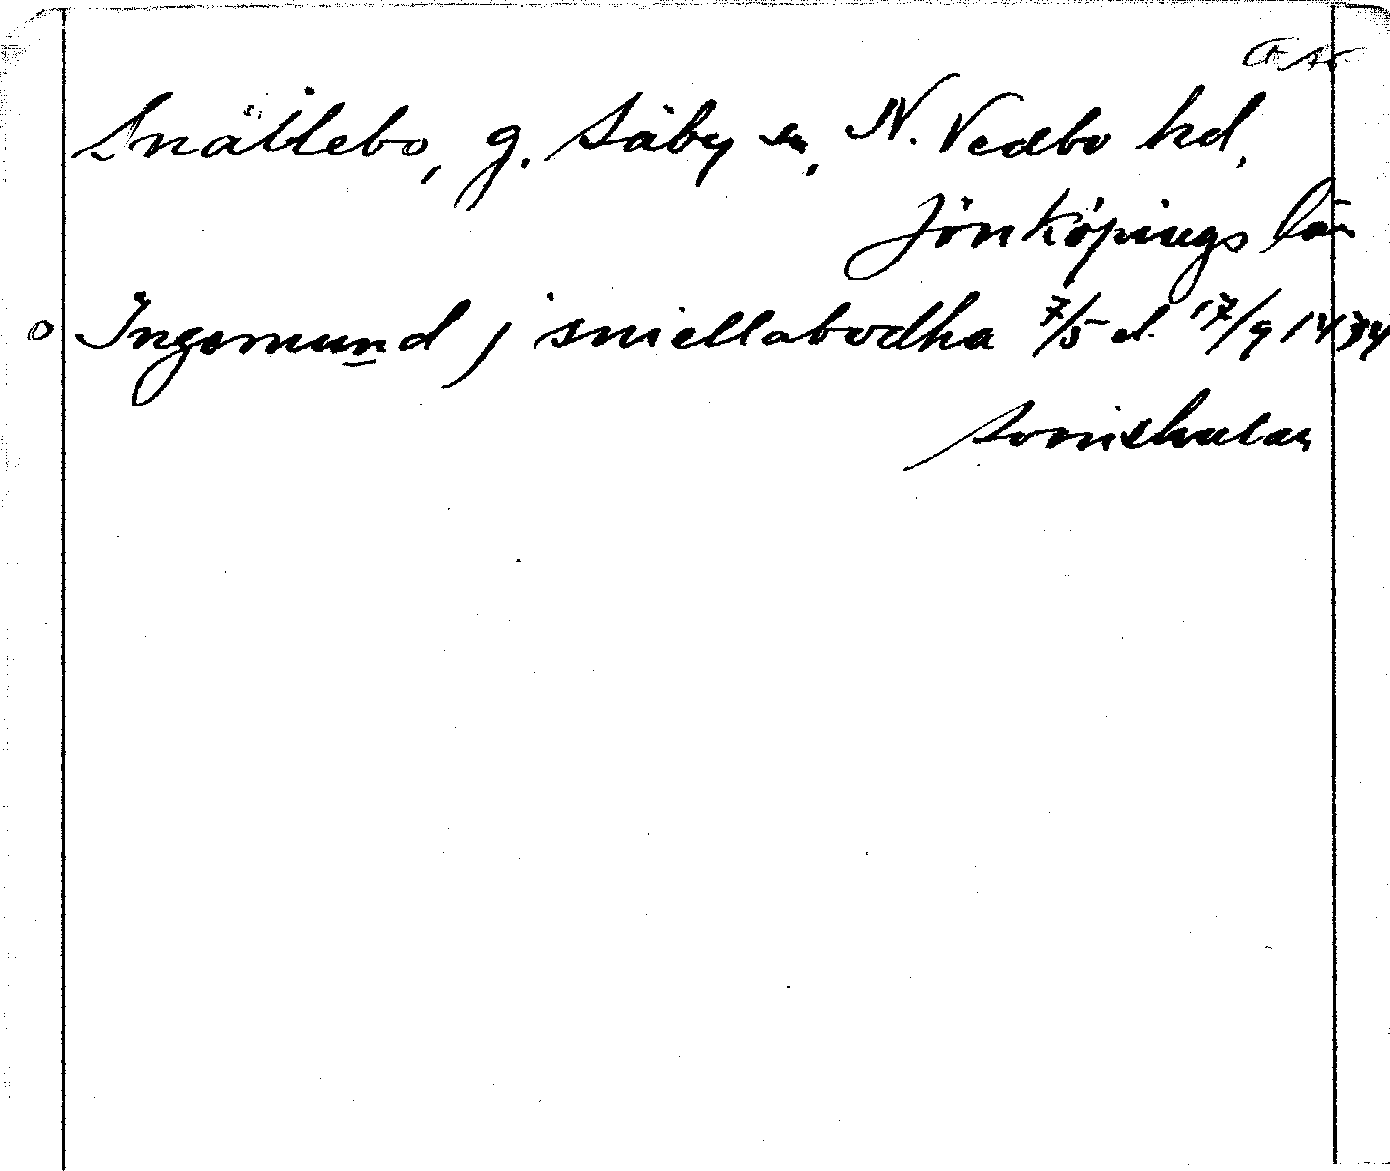 Snällebo, g. Säby sn, N. Vedbo hd,
Jönköpings län
o Ingemund j sniellabodha 7/5 el. 17/9 1434